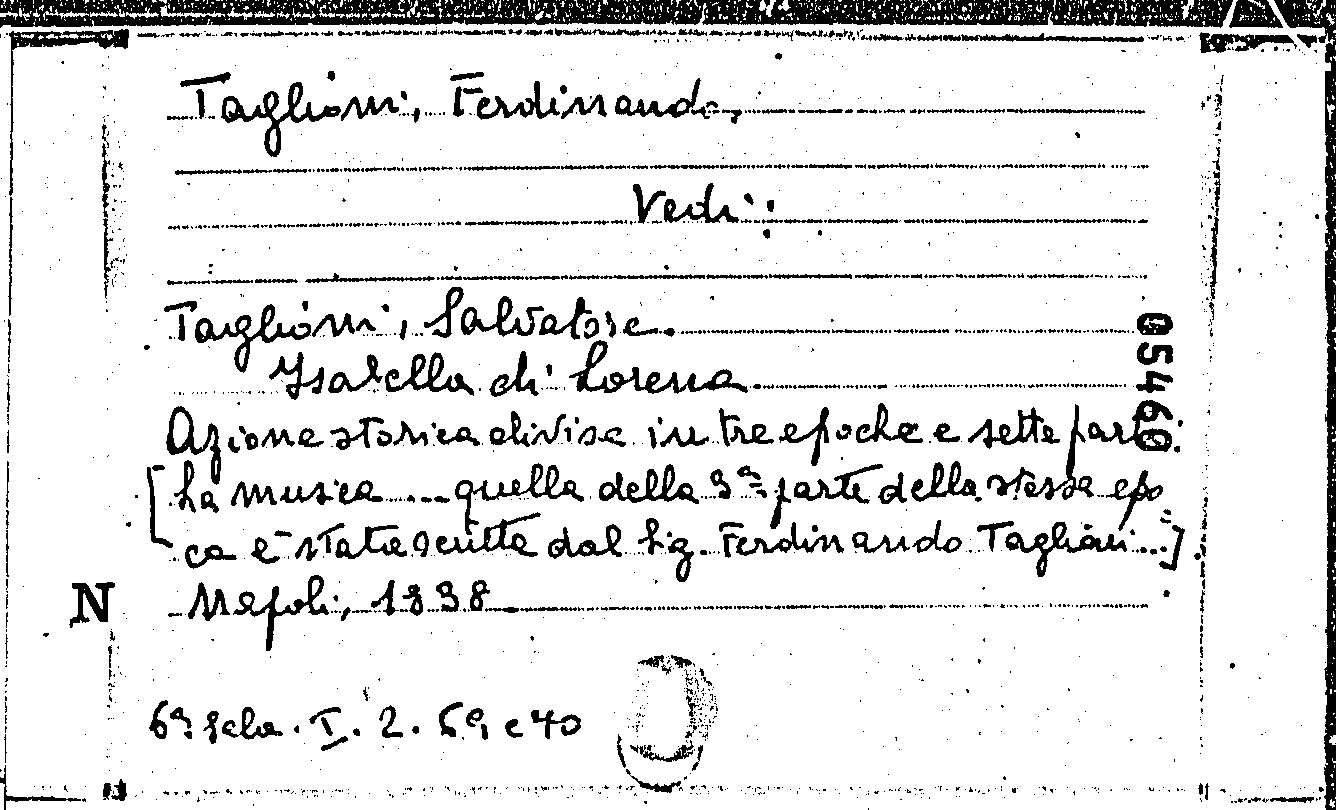 Taglioni, Ferdinando.
Vedi:
Taglioni, Salvatore.
Ysabella di Lorena.
Azione storica divisa in tre epoche e sette parti.
[La musica ... quella della 3ª parte della stessa epo=
ca è stata scritta dal Sig. Ferdinando Taglioni ...].
Napoli, 1838
6ª Sala. I. 2. 6(9, e 40
05460
N